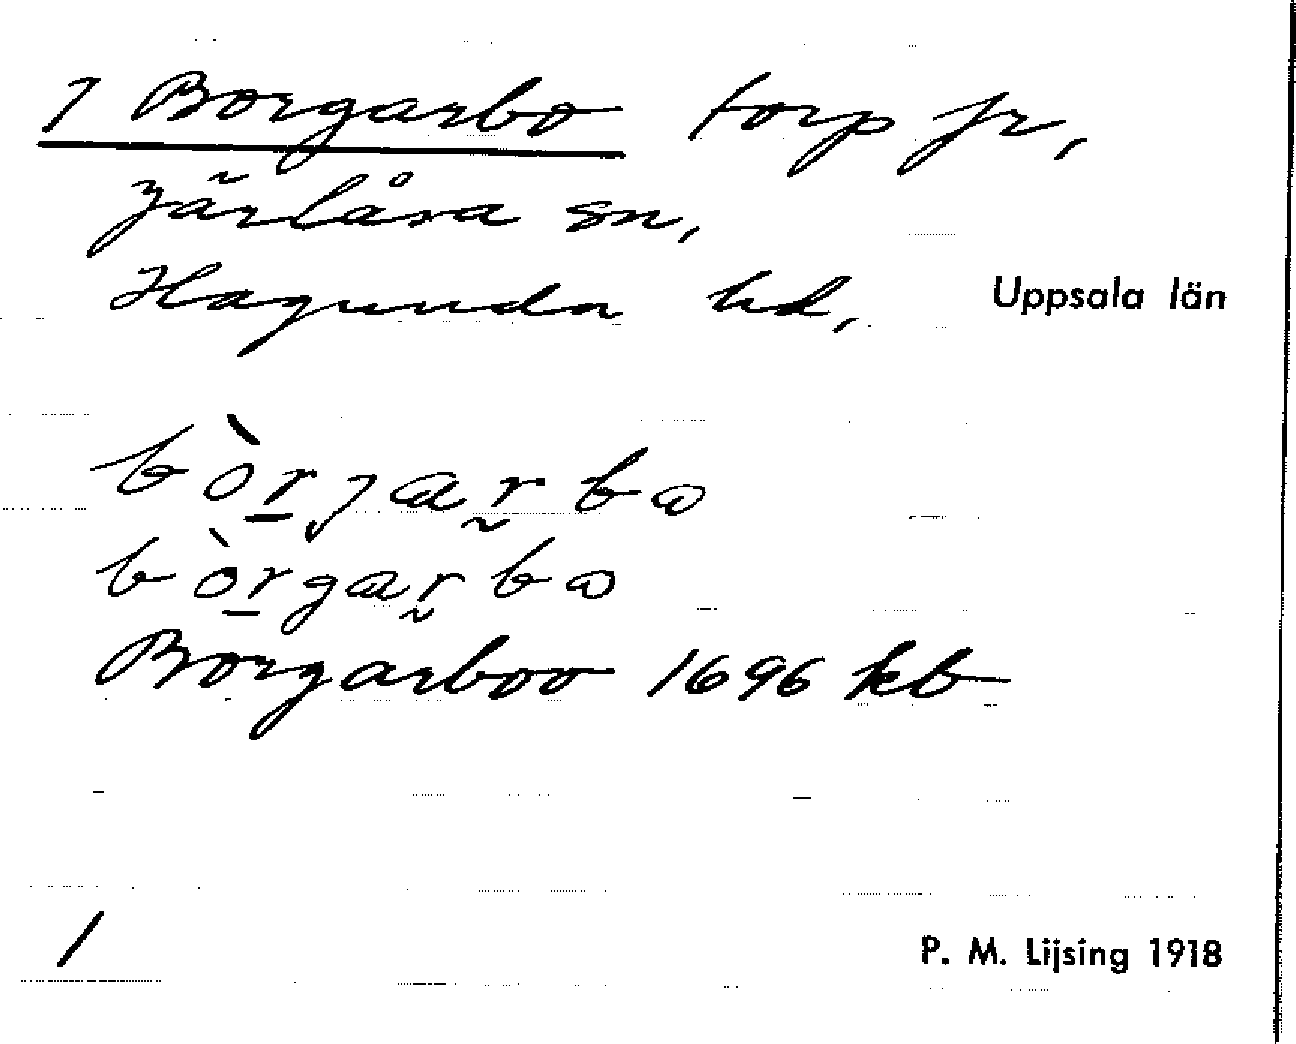 1 Borgarbo torp fr,
Järlåsa sn,
Hagunda hd, Uppsala län
bòrjarbo
bòrgarbo
Borgarboo 1696 kb
1
P. M. Lijsing 1918